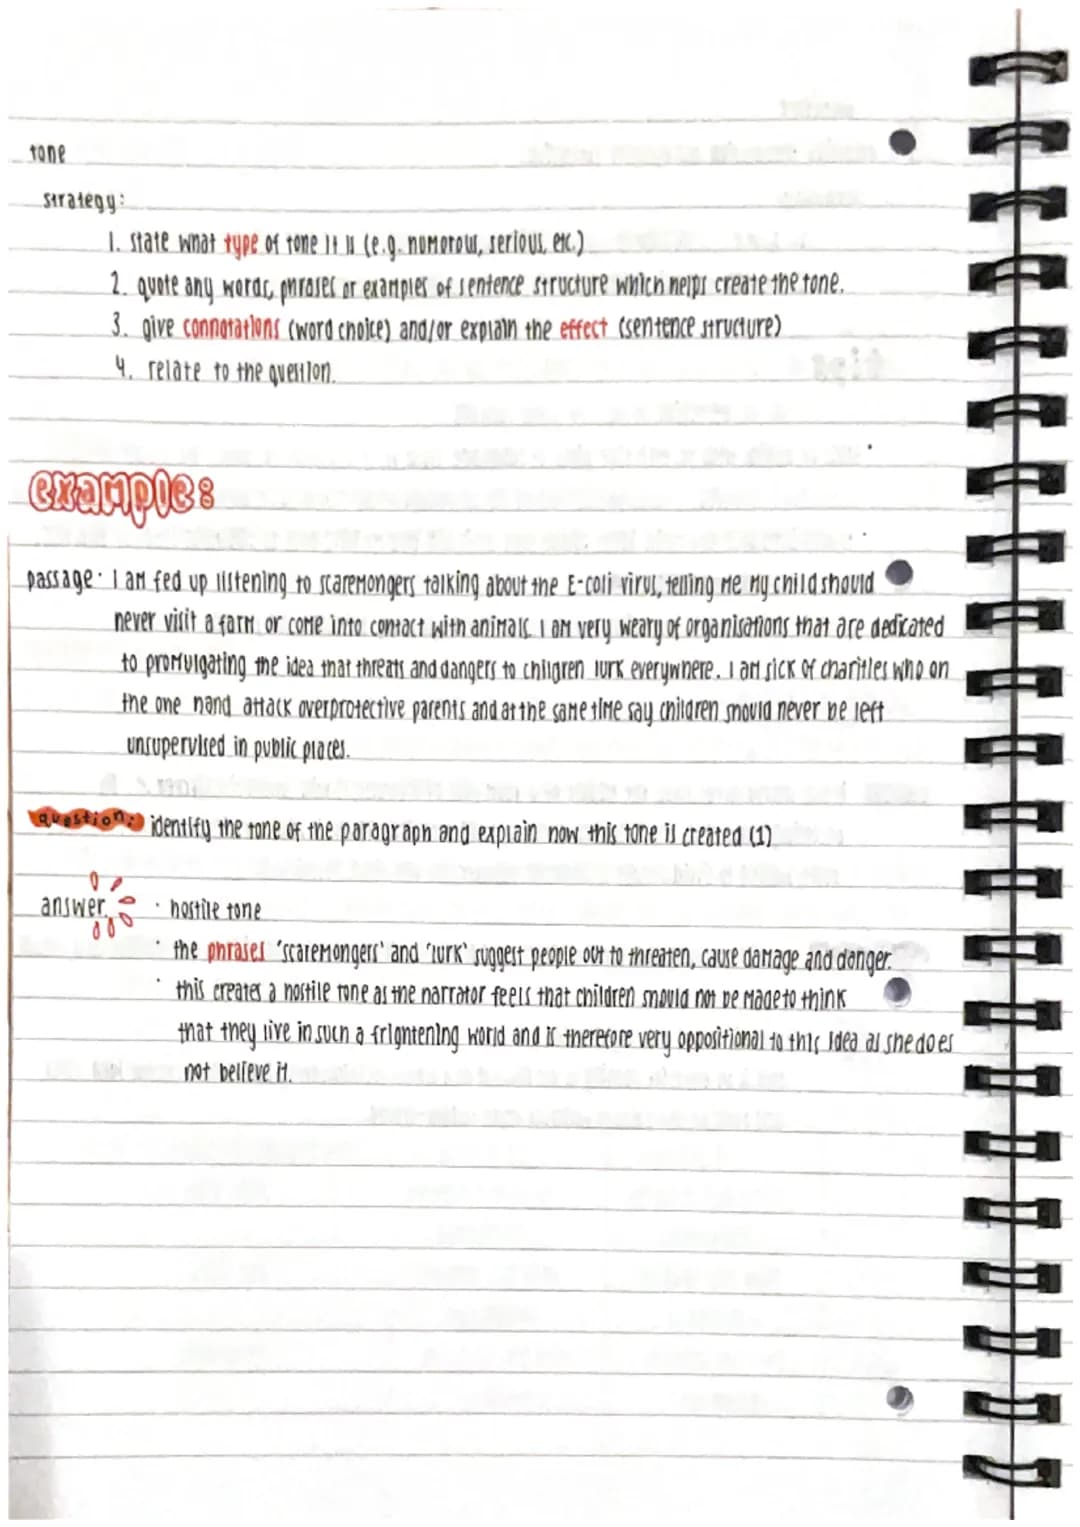 tone
strategy:
1. state what type of tone it is (e.g. humorous, serious, etc.)
2. quote any words, phrases or examples of sentence structure which helps create the tone.
3. give connotations (word choice) and/or explain the effect (sentence structure)
4. relate to the question.
example:
passage: I am fed up listening to scaremongers talking about the E-coli virus, telling me my child should
never visit a farm or come into contact with animals. I am very weary of organisations that are dedicated
to promulgating the idea that threats and dangers to children lurk everywhere. I am sick of charities who on
the one hand attack overprotective parents and at the same time say children should never be left
unsupervised in public places.
question: identify the tone of the paragraph and explain how this tone is created (1)
answer: · hostile tone
· the phrases 'scaremongers' and 'lurk' suggest people out to threaten, cause damage and danger.
· this creates a hostile tone as the narrator feels that children should not be made to think
that they live in such a frightening world and is therefore very oppositional to this idea as she does
not believe it.